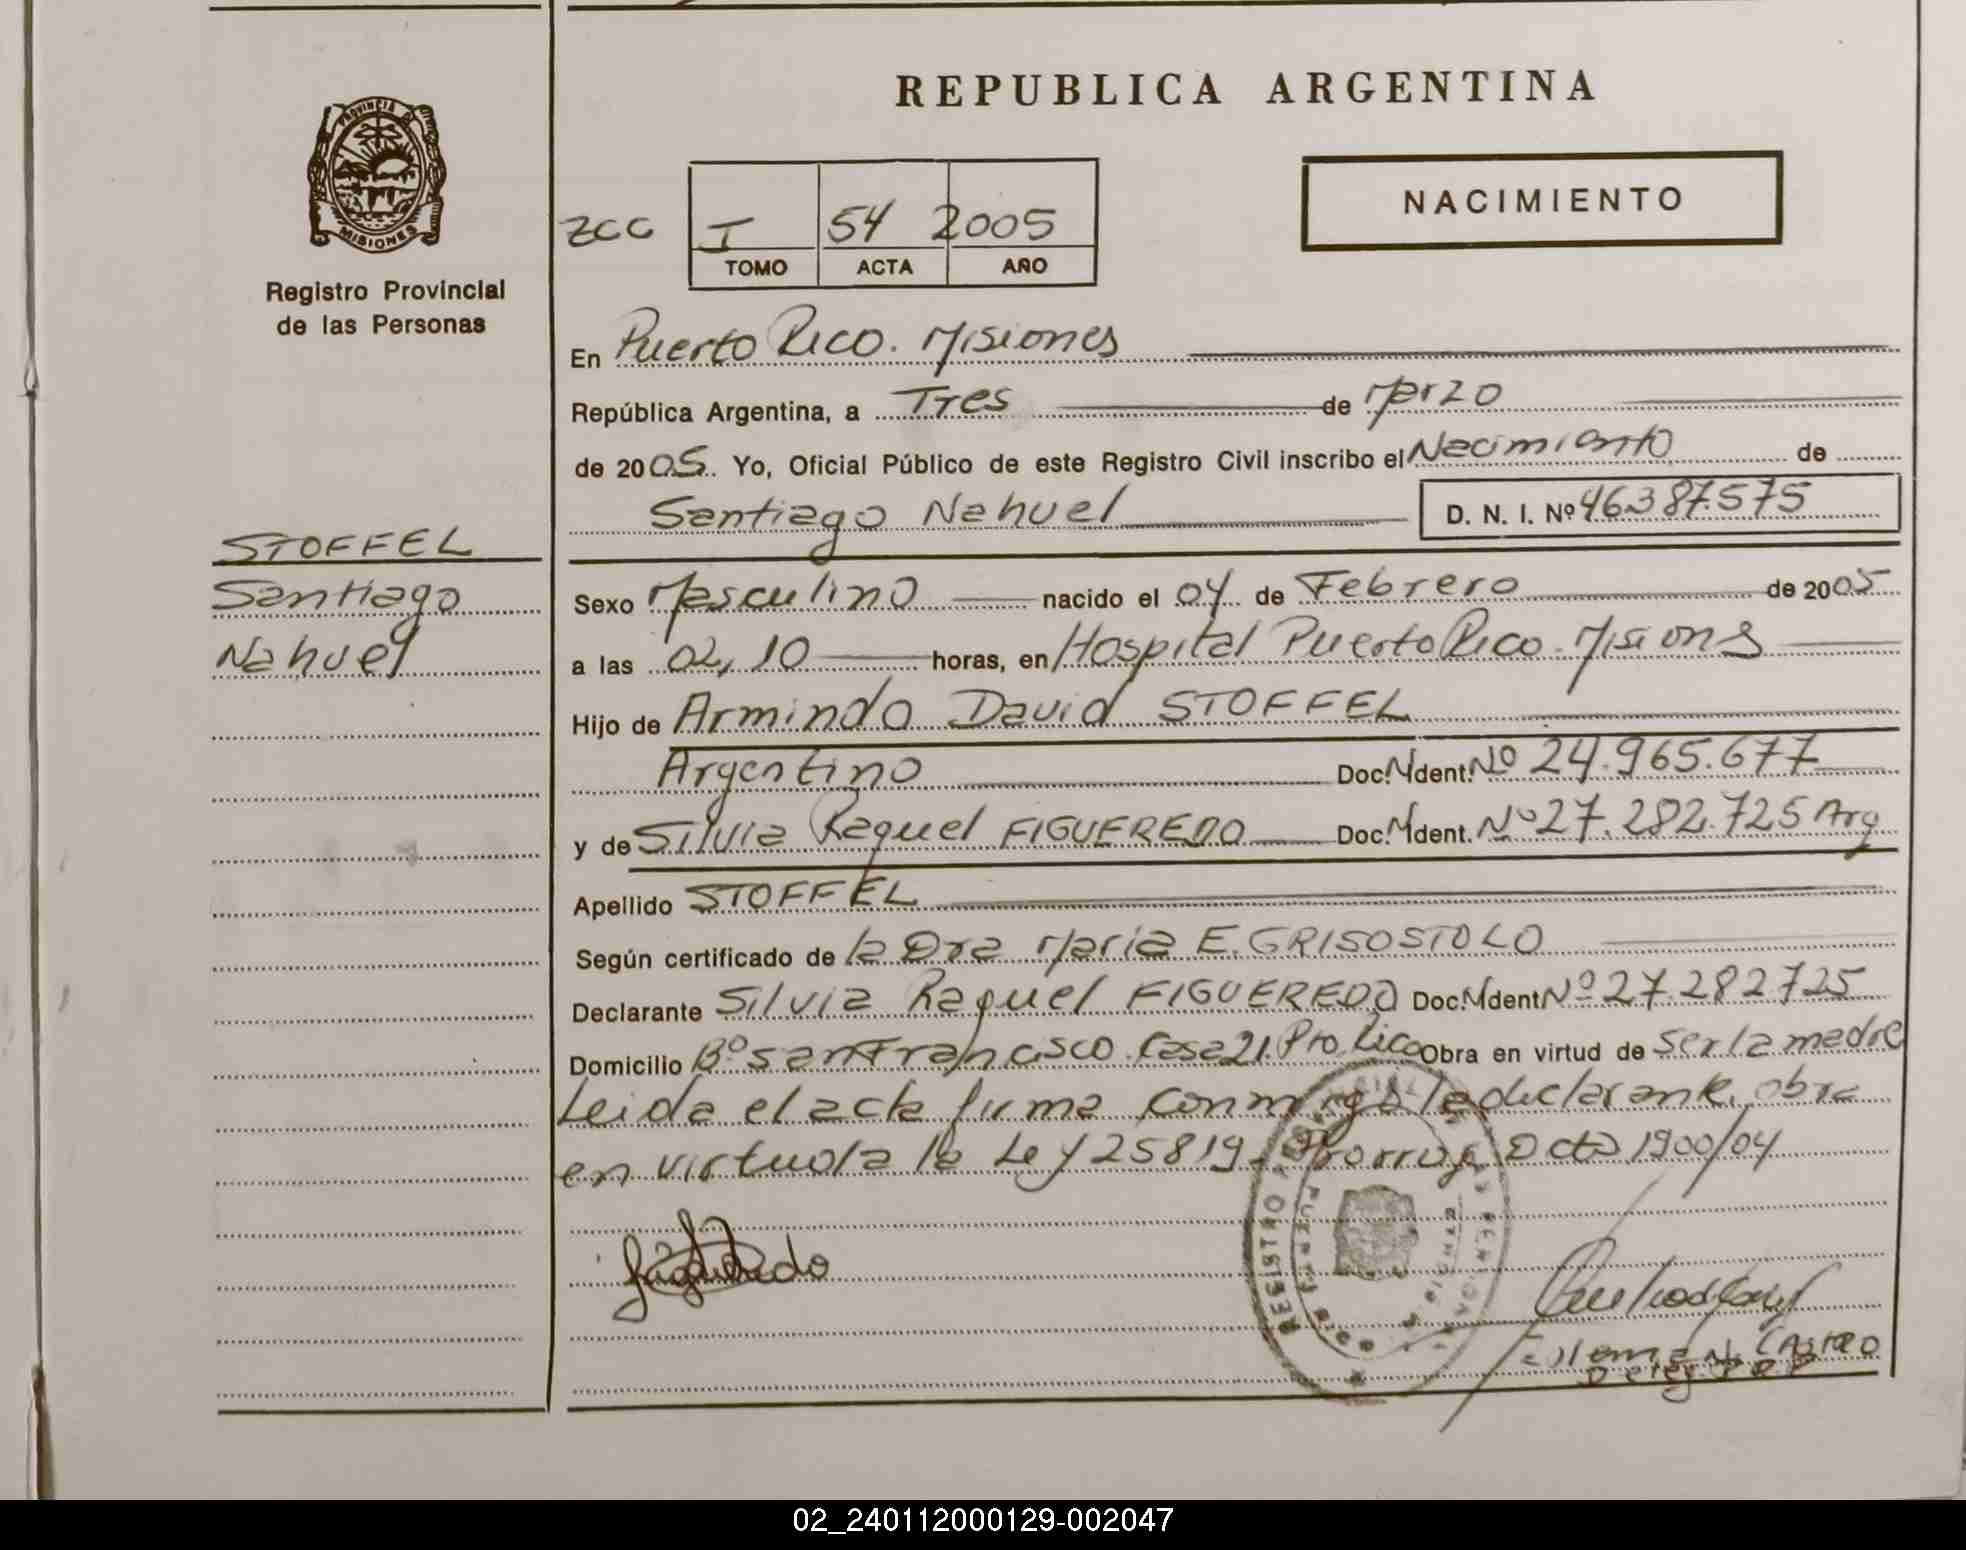 REPUBLICA ARGENTINA
PROVINCIA DE
MISIONES
Registro Provincial
de las Personas
NACIMIENTO
ZCC I 54 2005
TOMO ACTA AÑO
En Puerto Rico. Misiones
República Argentina, a Tres de Marzo
de 2005. Yo, Oficial Público de este Registro Civil inscribo el Nacimiento de
Santiago Nahuel D. N. I. Nº 46.387.575
STOFFEL
Santiago
Nahuel
Sexo Masculino nacido el 04 de Febrero de 2005
a las 02,10 horas, en Hospital Puerto Rico. Misions
Hijo de Armindo David STOFFEL
Argentino Doc. Ident. Nº 24.965.677
y de Silvia Raquel FIGUEREDO Doc. Ident. Nº 27.282.725 Arg
Apellido STOFFEL
Según certificado de la Dra Maria E. GRISOSTOLO
Declarante Silvia Raquel FIGUEREDO Doc. Ident Nº 27.282725
Domicilio Bº San Francisco. Casa 21. Pto Rico Obra en virtud de Ser la madre
Leida el acta firma conmigo la declarante, obra
en virtud a la Ley 25819. Prorroga Dcto 1900/04
REGISTRO
Figueredo
CASTRO
02_240112000129-002047